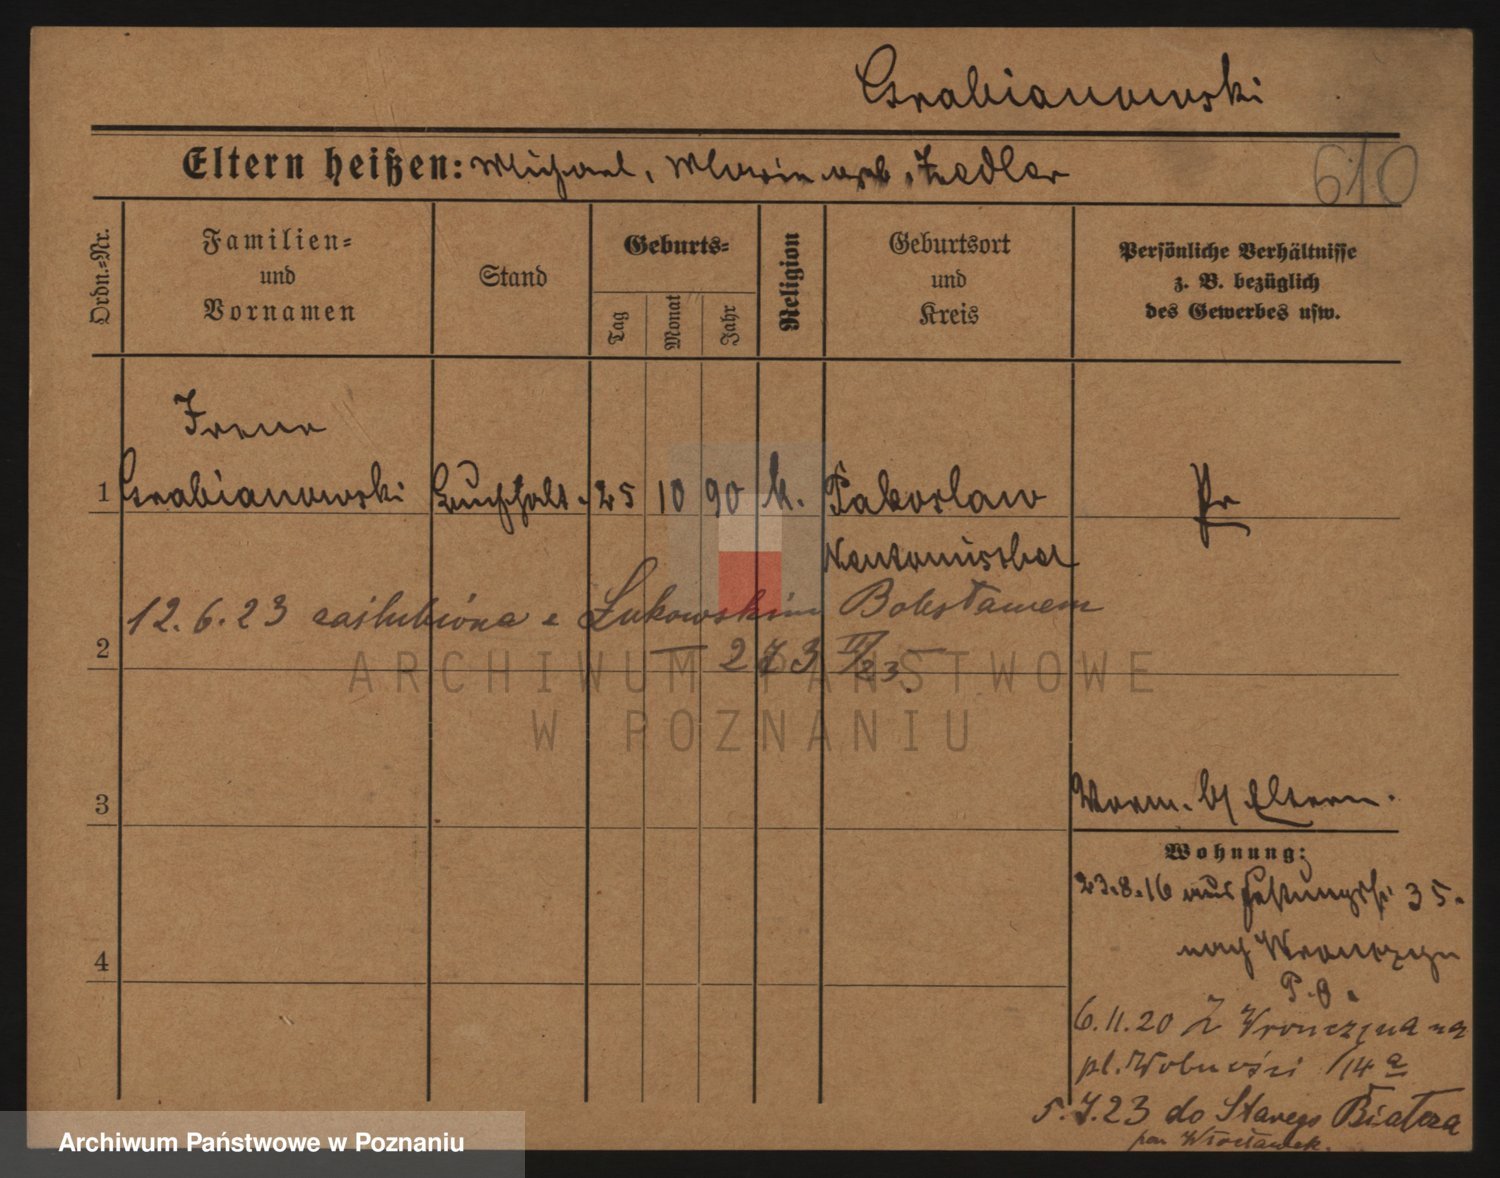 Grabianowski
610
Eltern heißen: Michael, Marie geb. Zedler
Ordn.-Nr.
Familien-
und
Vornamen
Stand
Geburts-
Tag
Monat
Jahr
Religion
Geburtsort
und
Kreis
Persönliche Verhältnisse
z. B. bezüglich
des Gewerbes usw.
Irene
1 Grabianowski Buchhalt. 25 10 90 k. Pakoslaw Pr
Neutomischel
12.6.23 zaślubiona z Łukowskim Bolesławem
2 — 273 II/23. —
ARCHIWUM PAŃSTWOWE
W POZNANIU
3
Vorm. b/ Eltern.
Wohnung:
23.8.16 aus Festungsstr 35.
4
nach Wronczyn
P. O.
6.11.20 Z Wronczyna na
pl. Wolności 14 a
5.7.23 do Starego Białcza
pow
Archiwum Państwowe w Poznaniu